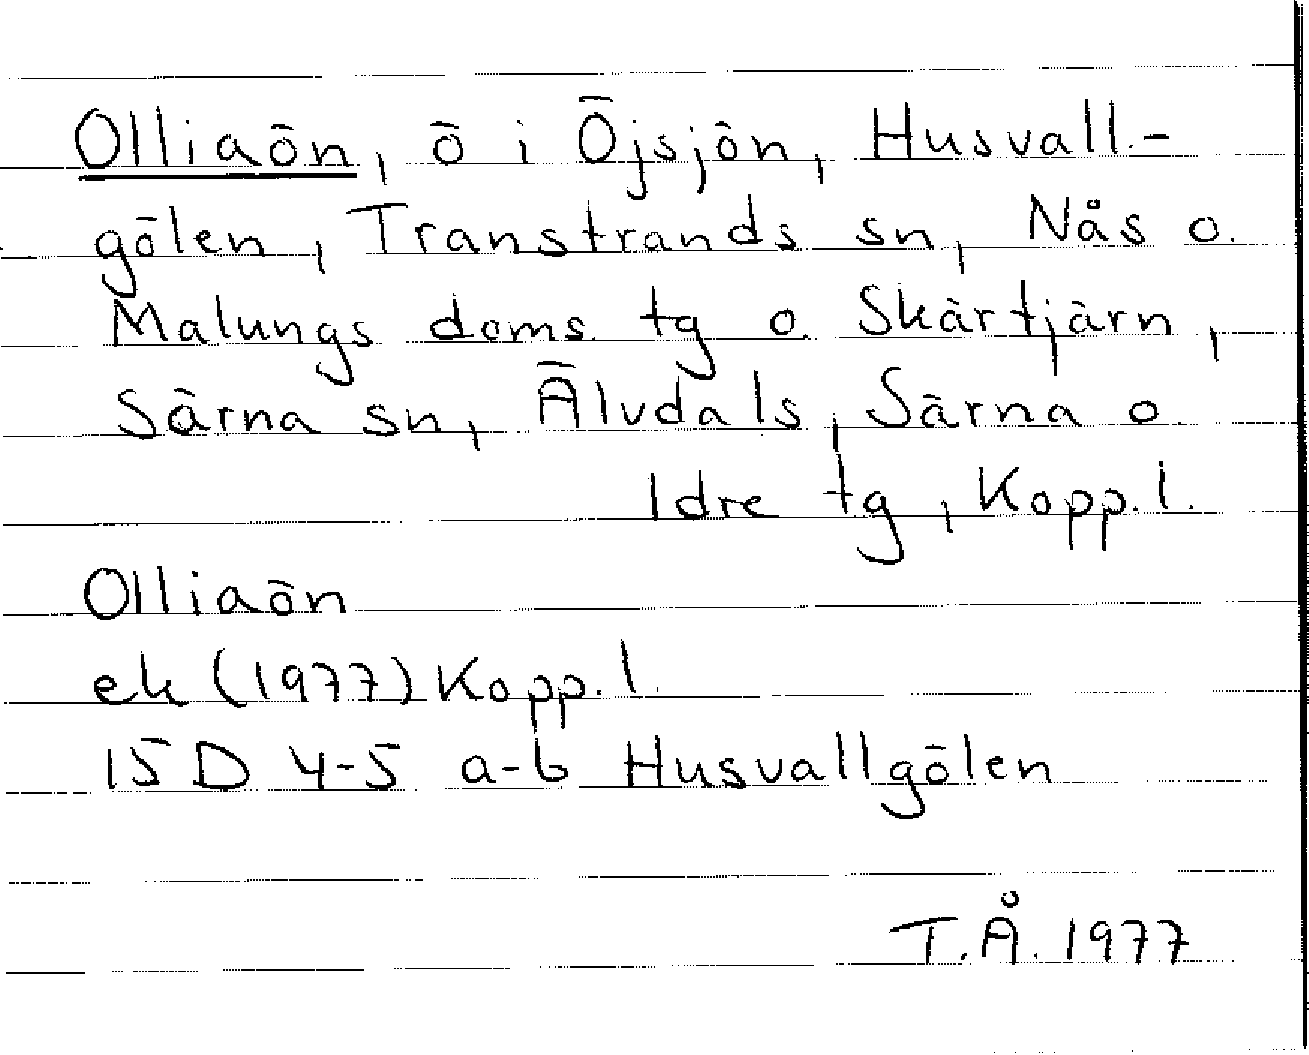 Olliaön, ö i Öjsjön, Husvall-
gölen, Transtrands sn, Nås o.
Malungs doms. tg o. Skärtjärn,
Särna sn, Älvdals, Särna o.
Idre tg, Kopp. l.
Olliaön
ek (1977) Kopp. l
15 D 4-5 a-b Husvallgölen
T.Å. 1977